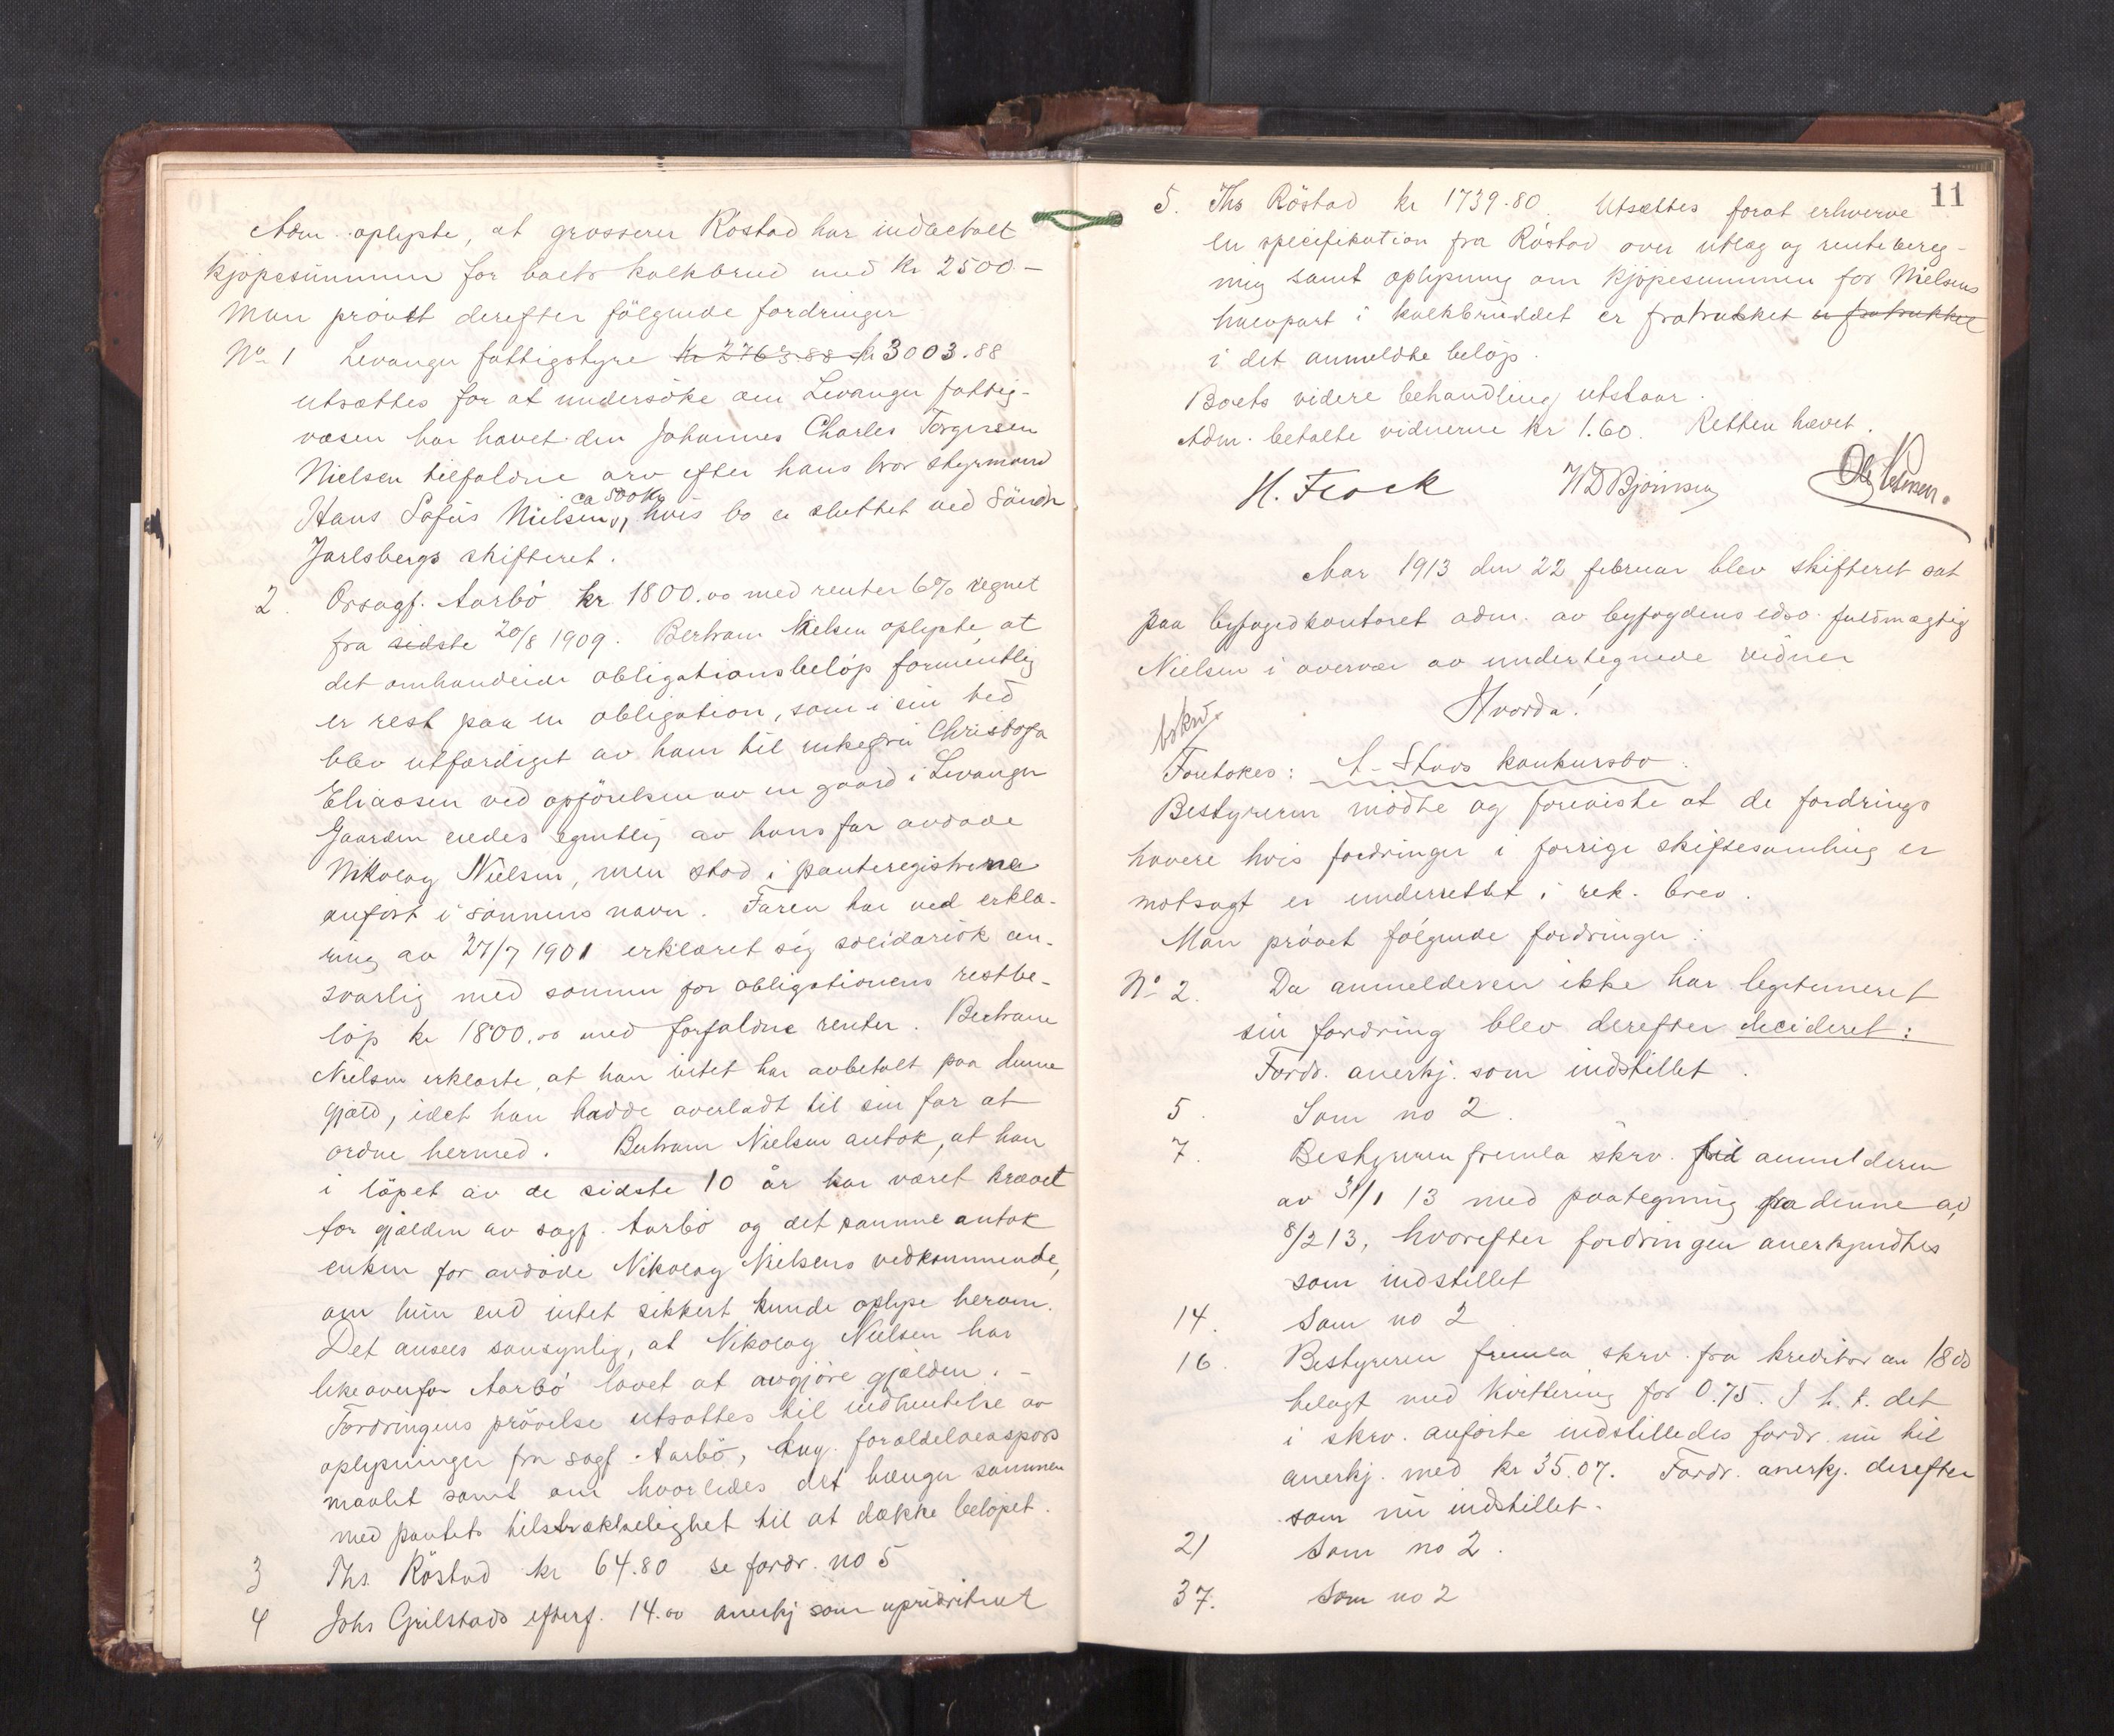 Adm. oplyste, at grosserer Röstad har indbetalt
kjöpesummen for boets kalkbrud med kr 2500 –
Man prövet derefter fölgende fordringer
No 1 Levanger fattigstyre kr 2763.88 kr 3003.88
utsættes for at undersöke om Levanger fattig-
væsen har hævet den Johannes Charles Torgersen
Nielsen tilfaldne arv efter hans bror styrmand
ca 500 kr
Hans Sofus Nielsen, hvis bo er sluttet ved Söndr
Jarlsbergs skifteret.
2. Orsagf. Aarbö kr 1800.00 med renter 6% regnet
fra sidste 20/8 1909. Bertram Nielsen oplyste, at
det omhandlede obligationsbelöp formentlig
er rest paa en obligation, som i sin tid
blev utfærdiget av ham til enkefru Christofa
Eliassen ved opförelsen av en gaard i Levanger
Gaarden eiedes egentlig av hans far avdöde
Nikolay Nielsen, men stod i panteregistrene
anfört i sönnens navn. Faren har ved erklæ-
ring av 27/7 1901 erklæret sig solidarisk an-
svarlig med sönnen for obligationens restbe-
löp kr 1800.00 med forfaldne renter. Bertram
Nielsen erklærte, at han intet har avbetalt paa denne
gjæld, idet han hadde overladt til sin far at
ordne hermed. Bertram Nielsen antok, at han
i löpet av de sidste 10 år har været krævet
for gjælden av sagf. Aarbö og det samme antok
enken for avdöde Nikolay Nielsens vedkommende,
om hun end intet sikkert kunde oplyse herom.
Det ansees sansynlig, at Nikolay Nielsen har
likeoverfor Aarbö lovet at avgjöre gjælden. –
Fordringens prövelse utsattes til indhentelse av
oplysninger fra sagf. Aarbö, ang. forældelsesspörs
maalet samt om hvorledes det hænger sammen
med pantets tilstrækkelighet til at dække belöpet.
3 Ths. Röstad kr 64.80 se fordr. no 5
4 Johs Grilstads efterf. 14.00 anerkj som uprioritert
11
5. Ths Röstad kr 1739.80. Utsættes forat erhverve
en specifikation fra Röstad over utlæg og rentebereg-
ning samt oplysning om kjöpesummen for Nielsens
halvpart i kalkbruddet er fratrukket er fratrukket
i det anmeldte belöp.
Boets videre behandling utstaar.
Adm. betalte vidnerne kr 1.60. Retten hævet.
H. Frock W D Bjömsen
Aar 1913 den 22 februar blev skifteret sat
paa byfogedkontoret adm. av byfogdens edsv. fuldmægtig
Nielsen i overvær av undertegnede vidner
Hvorda!
bokfört
Foretokes: A. Stavs konkursbo.
Bestyreren mödte og foreviste at de fordrings
havere hvis fordringer i forrige skiftesamling er
motsagt er underrettet i rek. brev.
Man prövet fölgende fordringer:
No 2. Da anmelderen ikke har legitimeret
sin fordring blev derefter decideret:
Fordr. anerkj. som indstillet.
5. Som no 2.
7. Bestyreren fremla skrv. fra anmelderen
av 31/1 13 med paategning fra denne av
8/2 13, hvorefter fordringen anerkjendtes
som indstillet
14. Som no 2.
16. Bestyreren fremla skrv. fra kreditor av 18 ds
belagt med kvittering for 0.75. I h. t. det
i skrv. anförte indstilledes fordr. nu til
anerkj. med kr 35.07. Fordr. anerkj. derefter
som nu indstillet.
21 Som no 2.
37. Som no 2